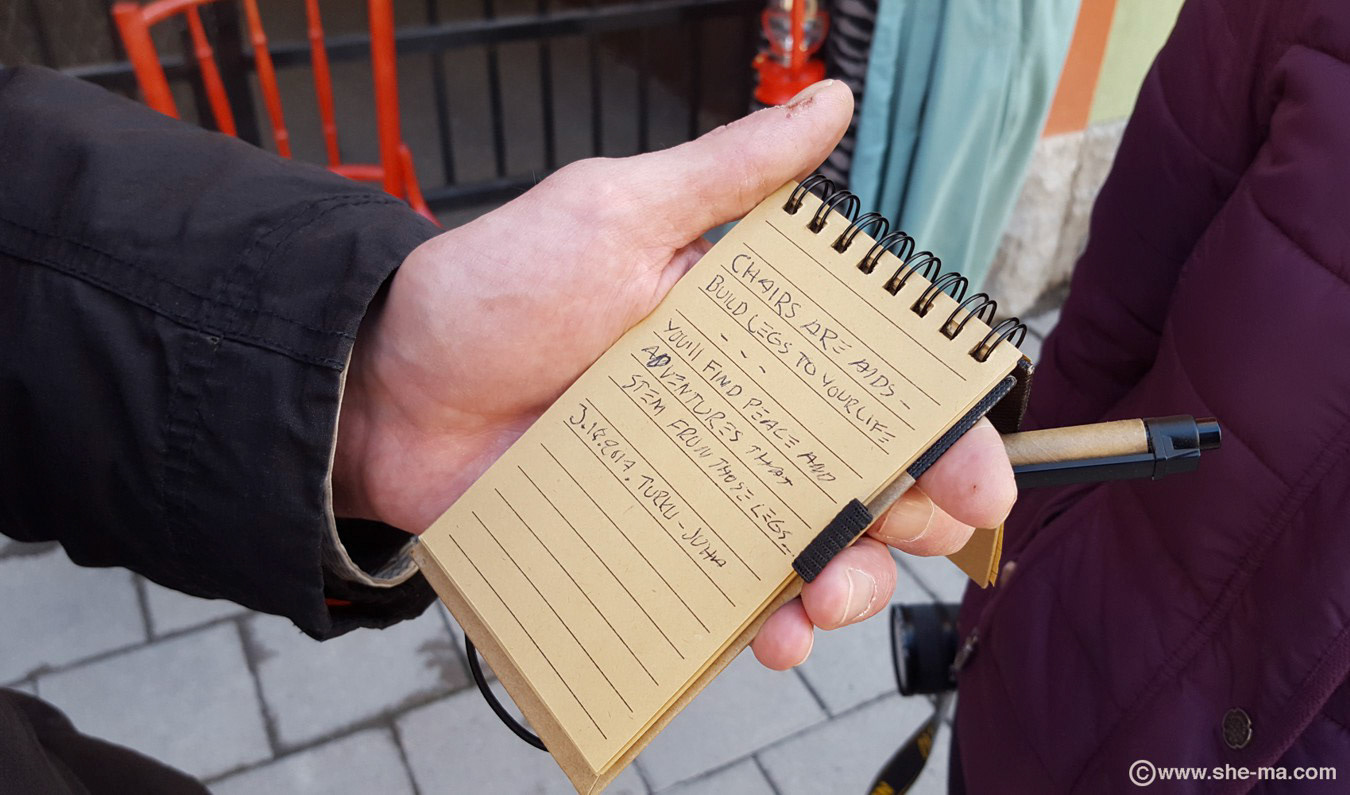 CHAIRS ARE AIDS -
BUILD LEGS TO YOUR LIFE
- - -
YOU'll FIND PEACE AND
ADVENTURES THAT
STEM FROM THOSE LEGS_
TURKU - JUHA
©www.she-ma.com